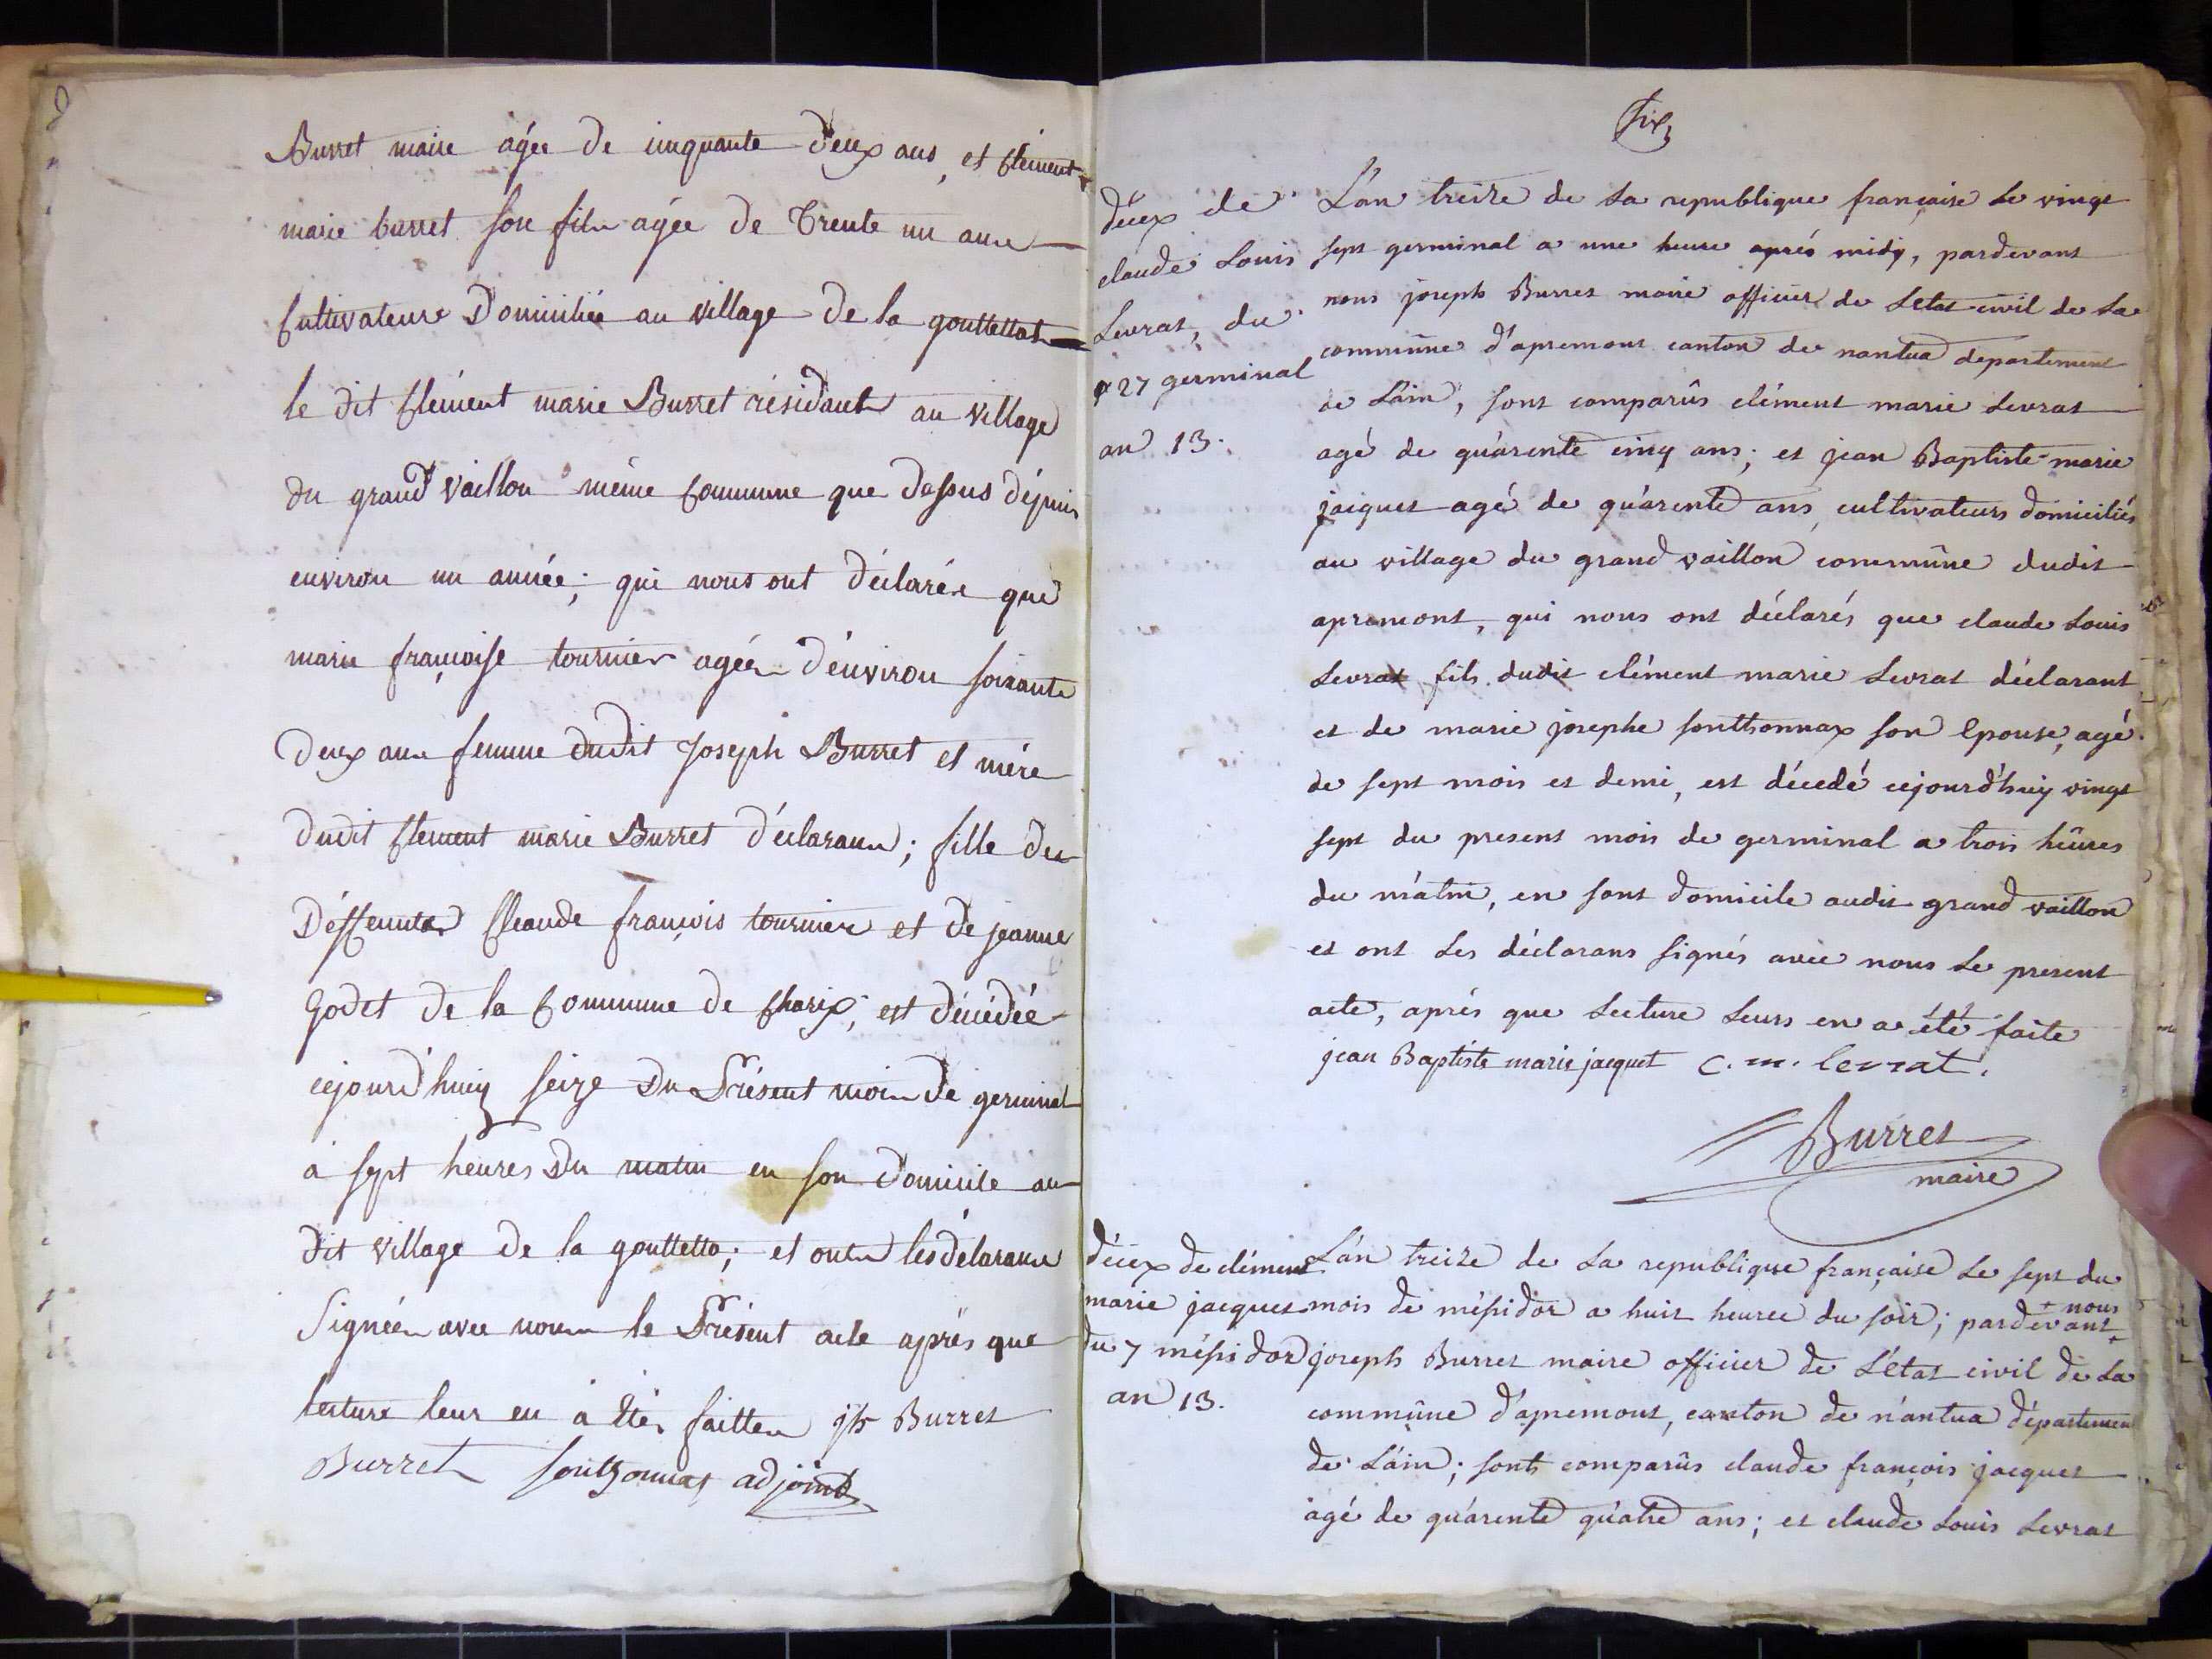 Burret maire agée de cinquante deux ans, et Clément
marie burret son fils agée de trente un ans
Cultivateurs Domiciliée au village de la gouttettat
le dit Clément marie Burret résidant au village
du grand Vaillon même Commune que dessus dépuis
environ un année; qui nous ont déclarés que
marie françoise tournier agée d'environ soixante
deux ans femme dudit Joseph Burret et mére
dudit Clement marie Burret déclarans; fille des
Deffeunts Cleaude françois tournier et de jeanne
Godet de la Commune de Charix, est décédée
cejourd'huiy seize Du Présent mois de germinal
à sept heures Du matin en son domicile au
dit village de la gouttetta; et onts les délarans
Signées avec nous le Présent acte après que
lecture leur en à été faittes jh Burret
Burret sonthonnax adjoint
Six
décex de
claude Louis
Levrat, du
27 germinal
an 13.
L'an treize de La republique française Le vingt
sept germinal a une heure aprés midy, pardevant
nous joseph Burret maire officier de Létat civil de La
commûne d'apremont canton de nantua departement
de L'ain, sont comparûs clément marie Levrat
agé de quárente cinq ans; et jean Baptiste marie
jaiquet agé de quárente ans, cultivateurs domiciliés
au village du grand vaillon commûne dudit
apremont, qui nous ont déclarés que claude Louis
Levrat fils dudit clément marie Levrat déclarant
et de marie josephe sonthonnax son Epouse, agé
de sept mois et demi, est décedé cejourd'huiy vingt
sept du present mois de germinal a trois hûres
du mátin, en sont domicile audit grand vaillon
et ont Les déclarans signés avec nous Le present
acte, aprés que Lecture Leurs en a été faite
jean Baptiste marie jacquet c. m. levrat.
Burret
maire
décex de clément
marie jacquet
du 7 méssidor
an 13.
L'án treize de La republique française Le sept du
mois de méssidor a huit heures du soir; pardevant
+ nous
joseph Burret maire officier de L'état civil de La
commûne d'apremont, canton de nántua département
de L'áin; sont comparûs claude françois jacquet
agé de quárente quátre ans; et claude Louis Levrat